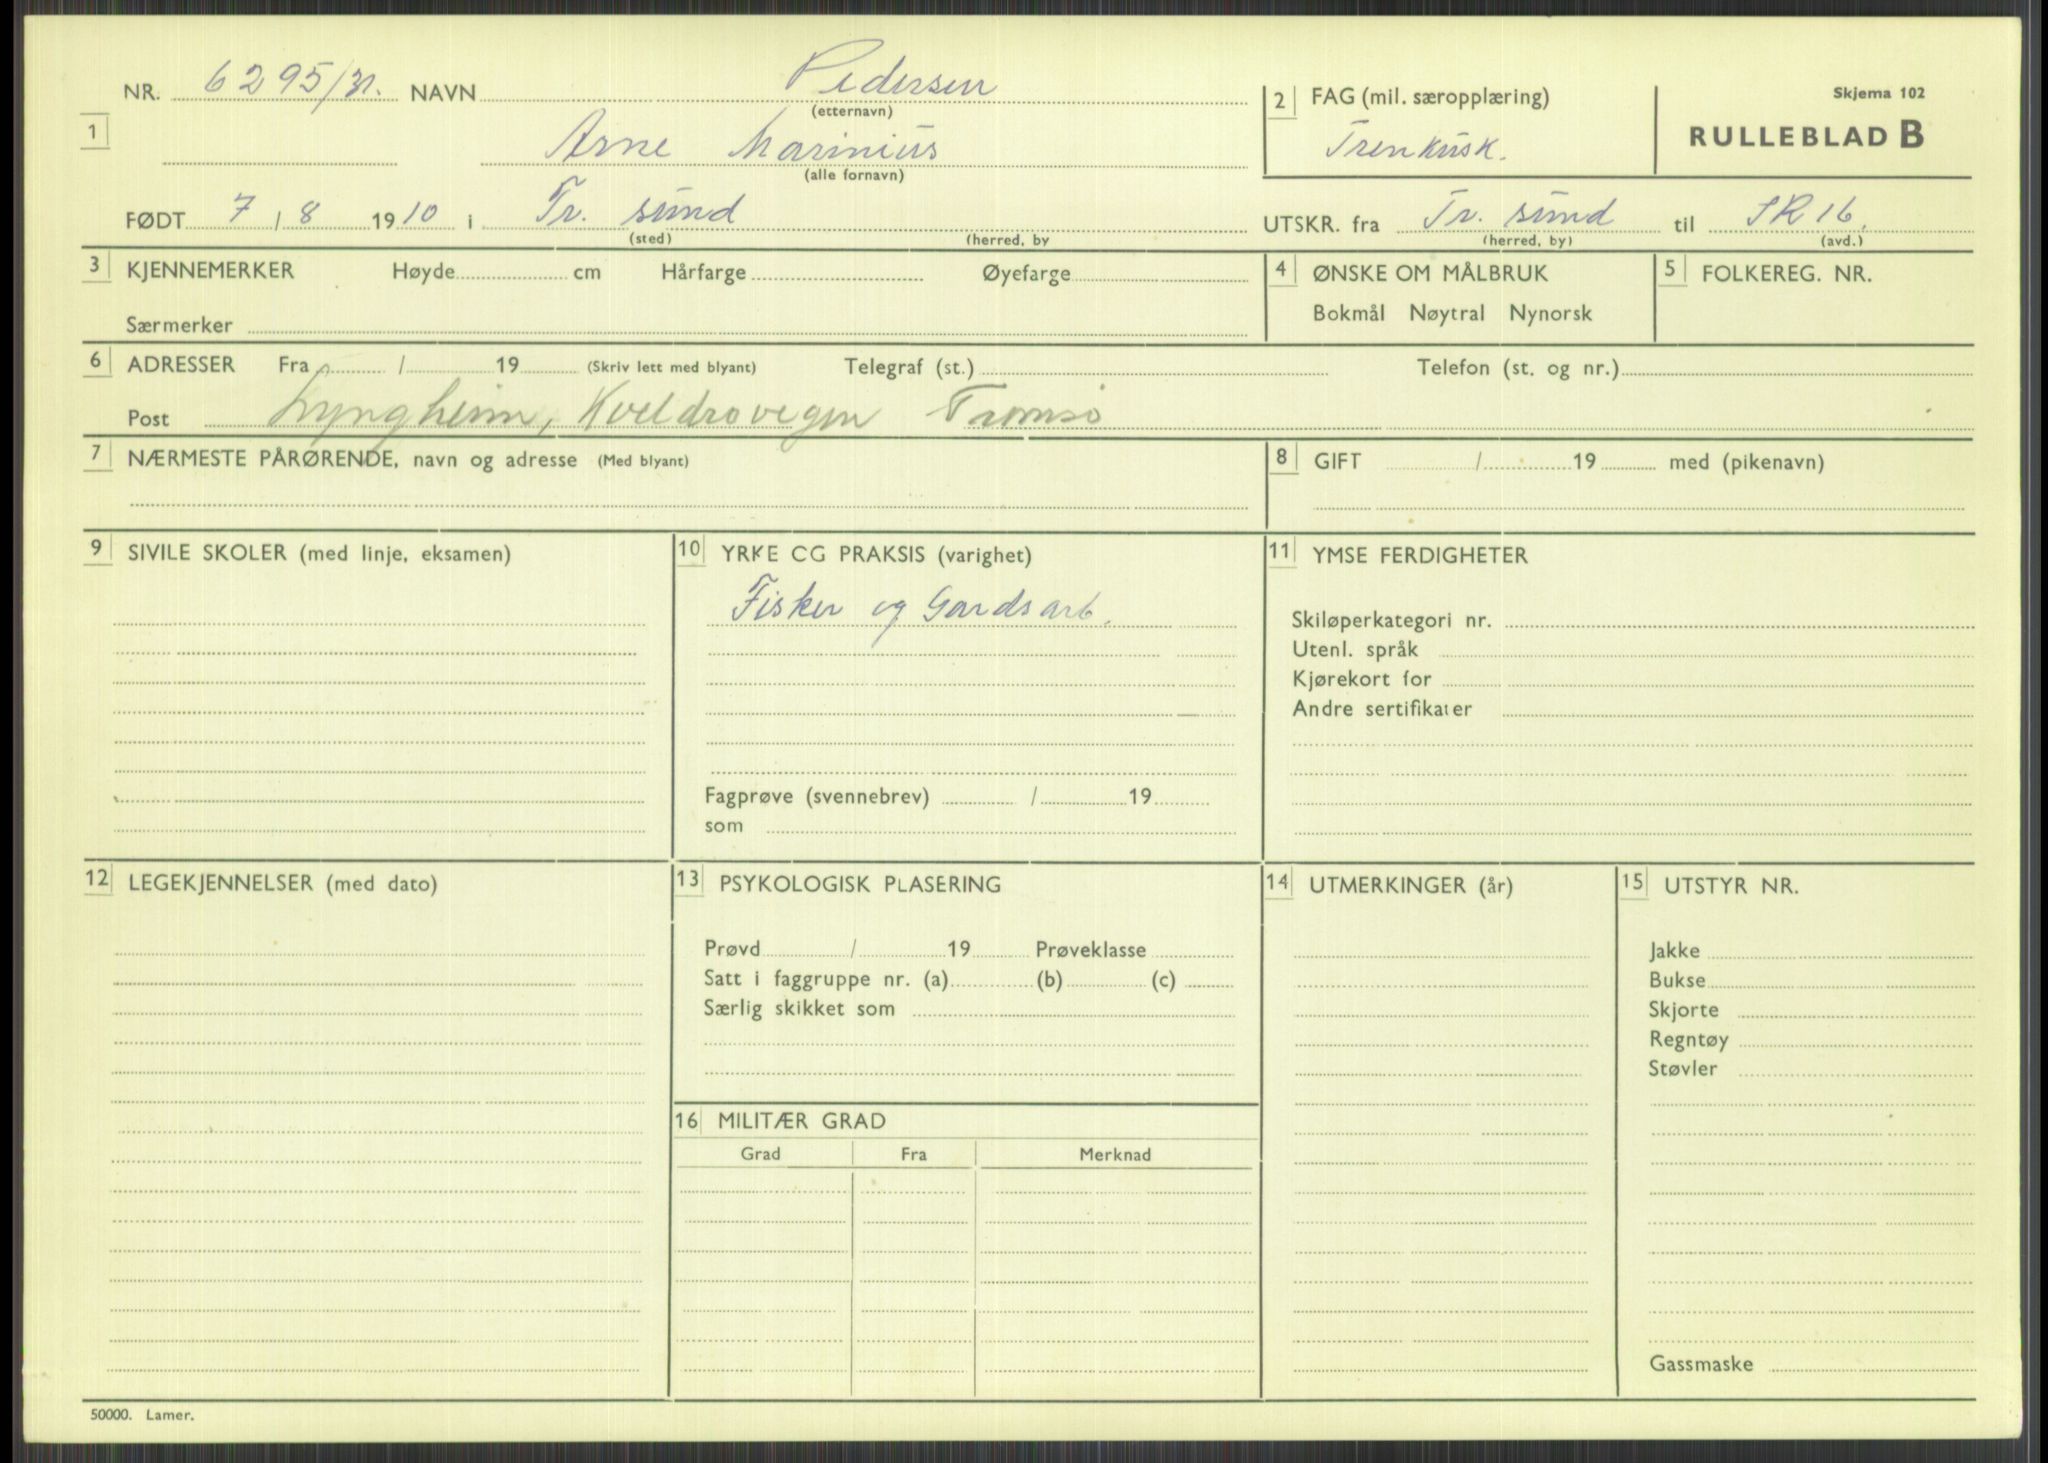 NR. 6295/31. NAVN Pedersen
(etternavn)
1
Arne Marinius
(alle fornavn)
2 FAG (mil. særopplæring)
Trenkusk.
Skjema 102
RULLEBLAD B
FØDT 7 / 8 1910 i Tr. sund
(sted) (herred, by
UTSKR. fra Tr. sund til IR 16.
(herred, by) (avd.)
3 KJENNEMERKER Høyde cm Hårfarge Øyefarge
Særmerker
4 ØNSKE OM MÅLBRUK
Bokmål Nøytral Nynorsk
5 FOLKEREG. NR.
6 ADRESSER Fra / 19 (Skriv lett med blyant) Telegraf (st.) Telefon (st. og nr.)
Post Lyngheim, Kveldrovegen Tromsø
7 NÆRMESTE PÅRØRENDE, navn og adresse (Med blyant)
8 GIFT / 19 med (pikenavn)
9 SIVILE SKOLER (med linje, eksamen)
10 YRKE CG PRAKSIS (varighet)
Fisker og Gardsarb.
Fagprøve (svennebrev) / 19
som
11 YMSE FERDIGHETER
Skiløperkategori nr.
Utenl. språk
Kjørekort for
Andre sertifikater
12 LEGEKJENNELSER (med dato)
13 PSYKOLOGISK PLASERING
Prøvd / 19 Prøveklasse
Satt i faggruppe nr. (a) (b) (c)
Særlig skikket som
14 UTMERKINGER (år)
15 UTSTYR NR.
Jakke
Bukse
Skjorte
Regntøy
Støvler
Gassmaske
16 MILITÆR GRAD
Grad Fra Merknad
50000. Lamer.